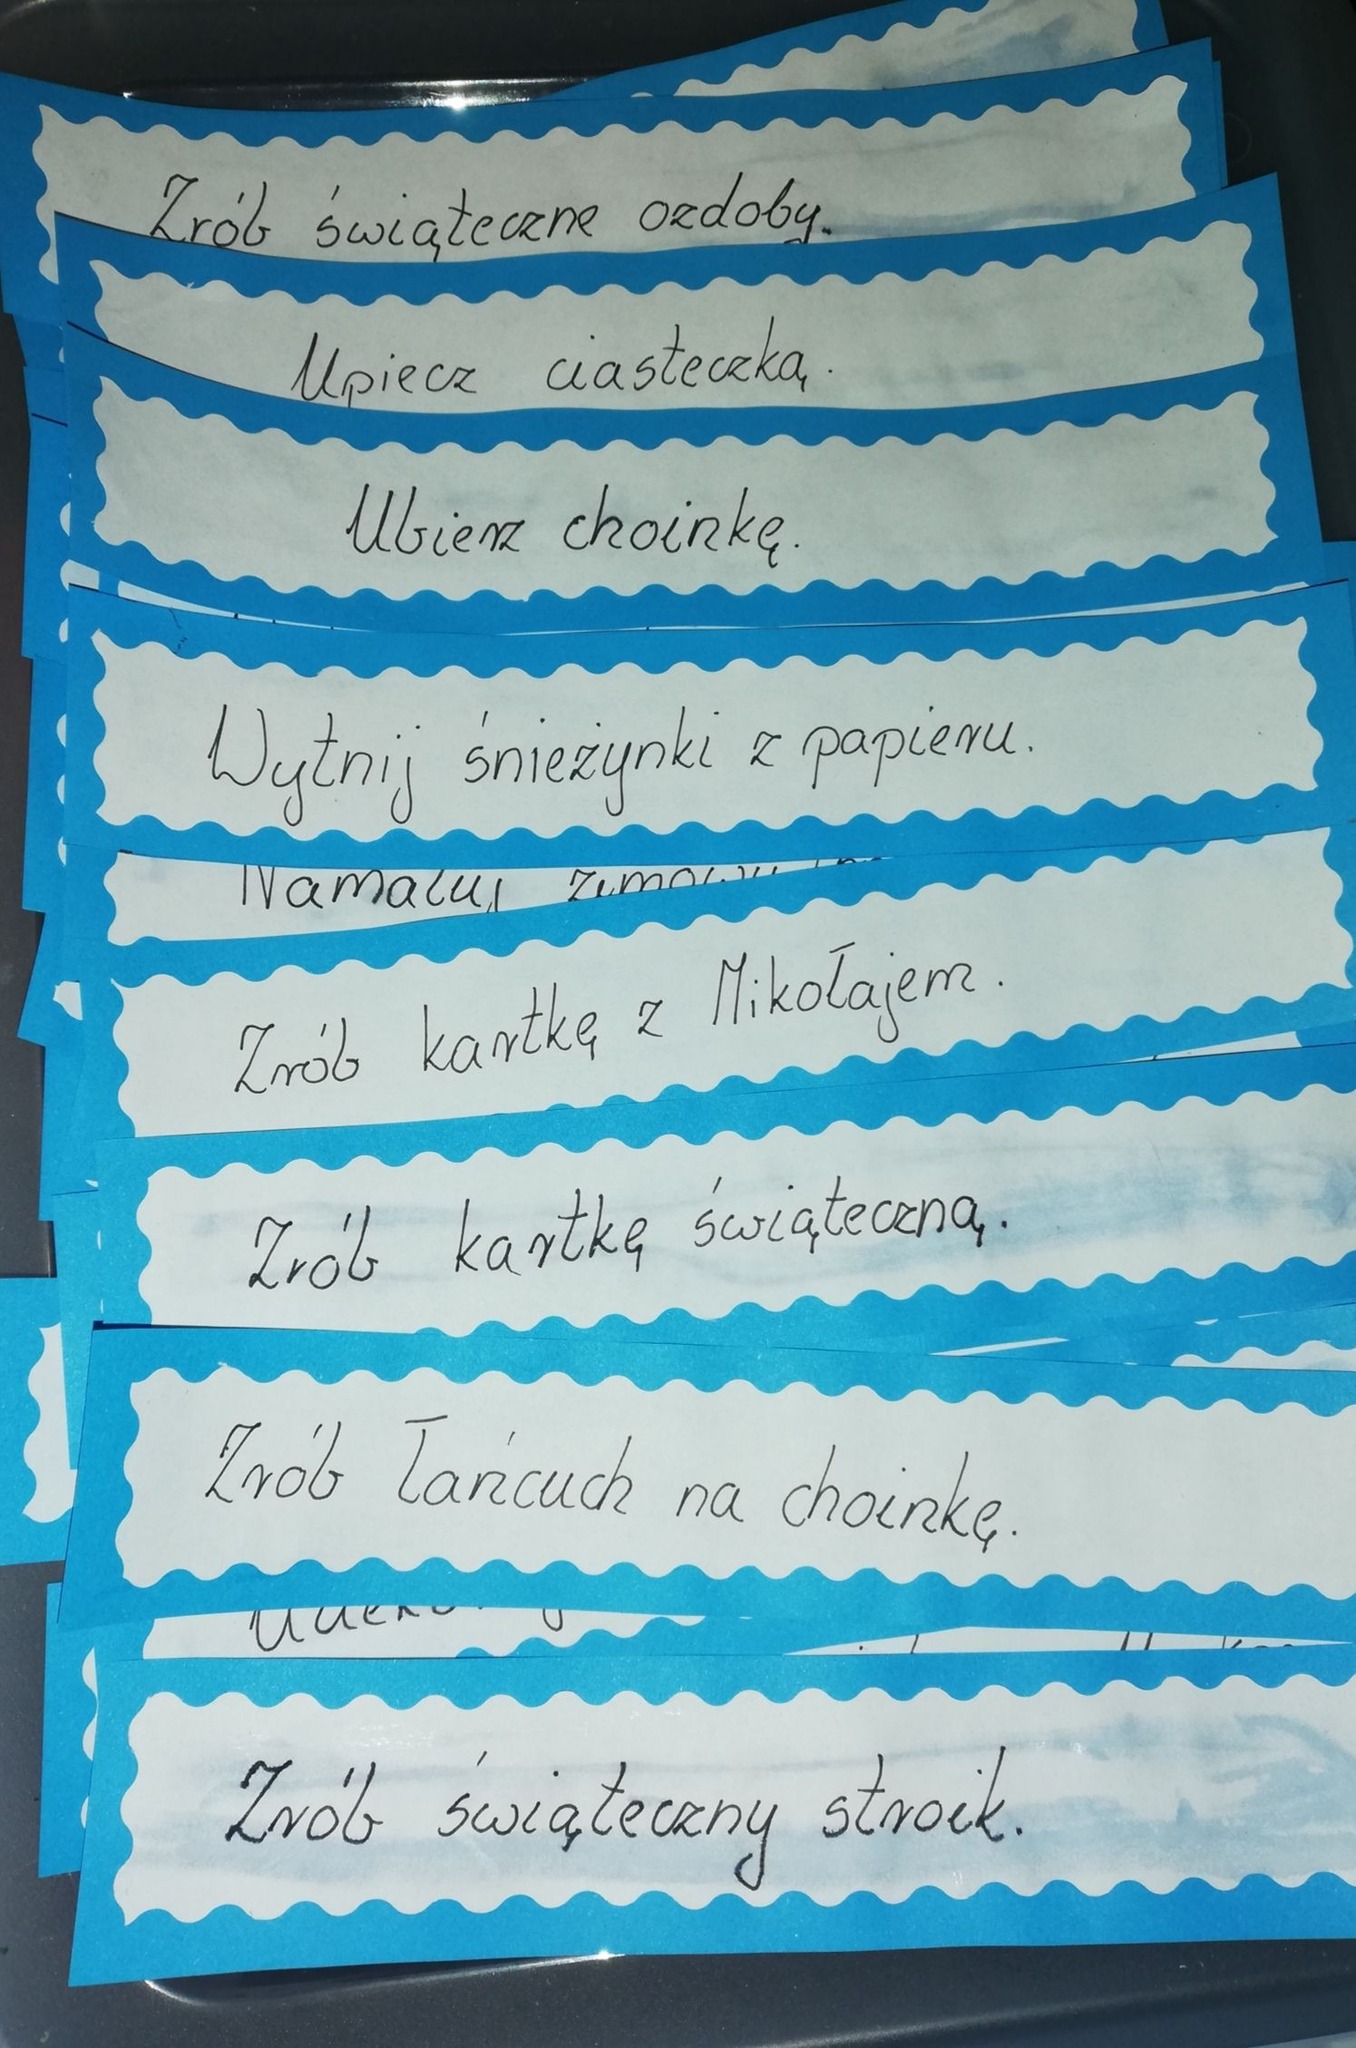 Zrób świąteczne ozdoby.
Upiecz ciasteczka.
Ubierz choinkę.
Wytnij śnieżynki z papieru.
Namaluj zimowy
Zrób kartkę z Mikołajem.
Zrób kartkę świąteczną.
Zrób łańcuch na choinkę.
Zrób świąteczny stroik.